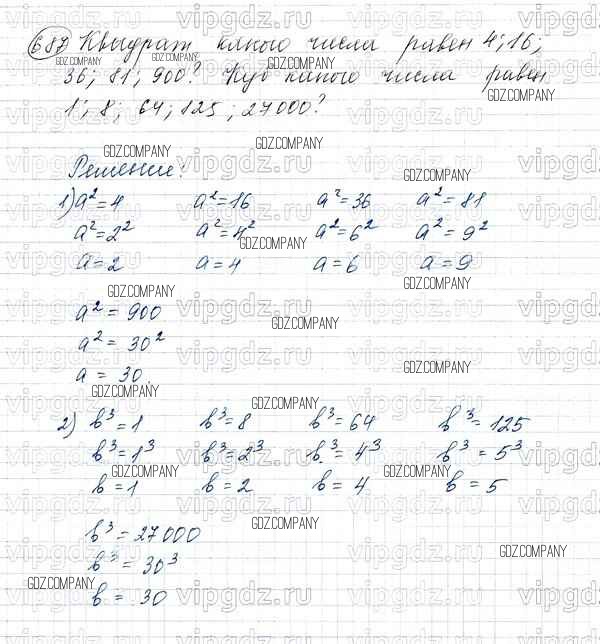 687 Квадрат какого числа равен 4; 16;
36; 81; 900? Куб какого числа равен
1; 8; 64; 125; 27000?
Решение:
1) a² = 4 a² = 16 a² = 36 a² = 81
a² = 2² a² = 4² a² = 6² a² = 9²
a = 2 a = 4 a = 6 a = 9
a² = 900
a² = 30²
a = 30
2) b³ = 1 b³ = 8 b³ = 64 b³ = 125
b³ = 1³ b³ = 2³ b³ = 4³ b³ = 5³
b = 1 b = 2 b = 4 b = 5
b³ = 27000
b³ = 30³
b = 30
GDZ.COMPANY
vipgdz.ru